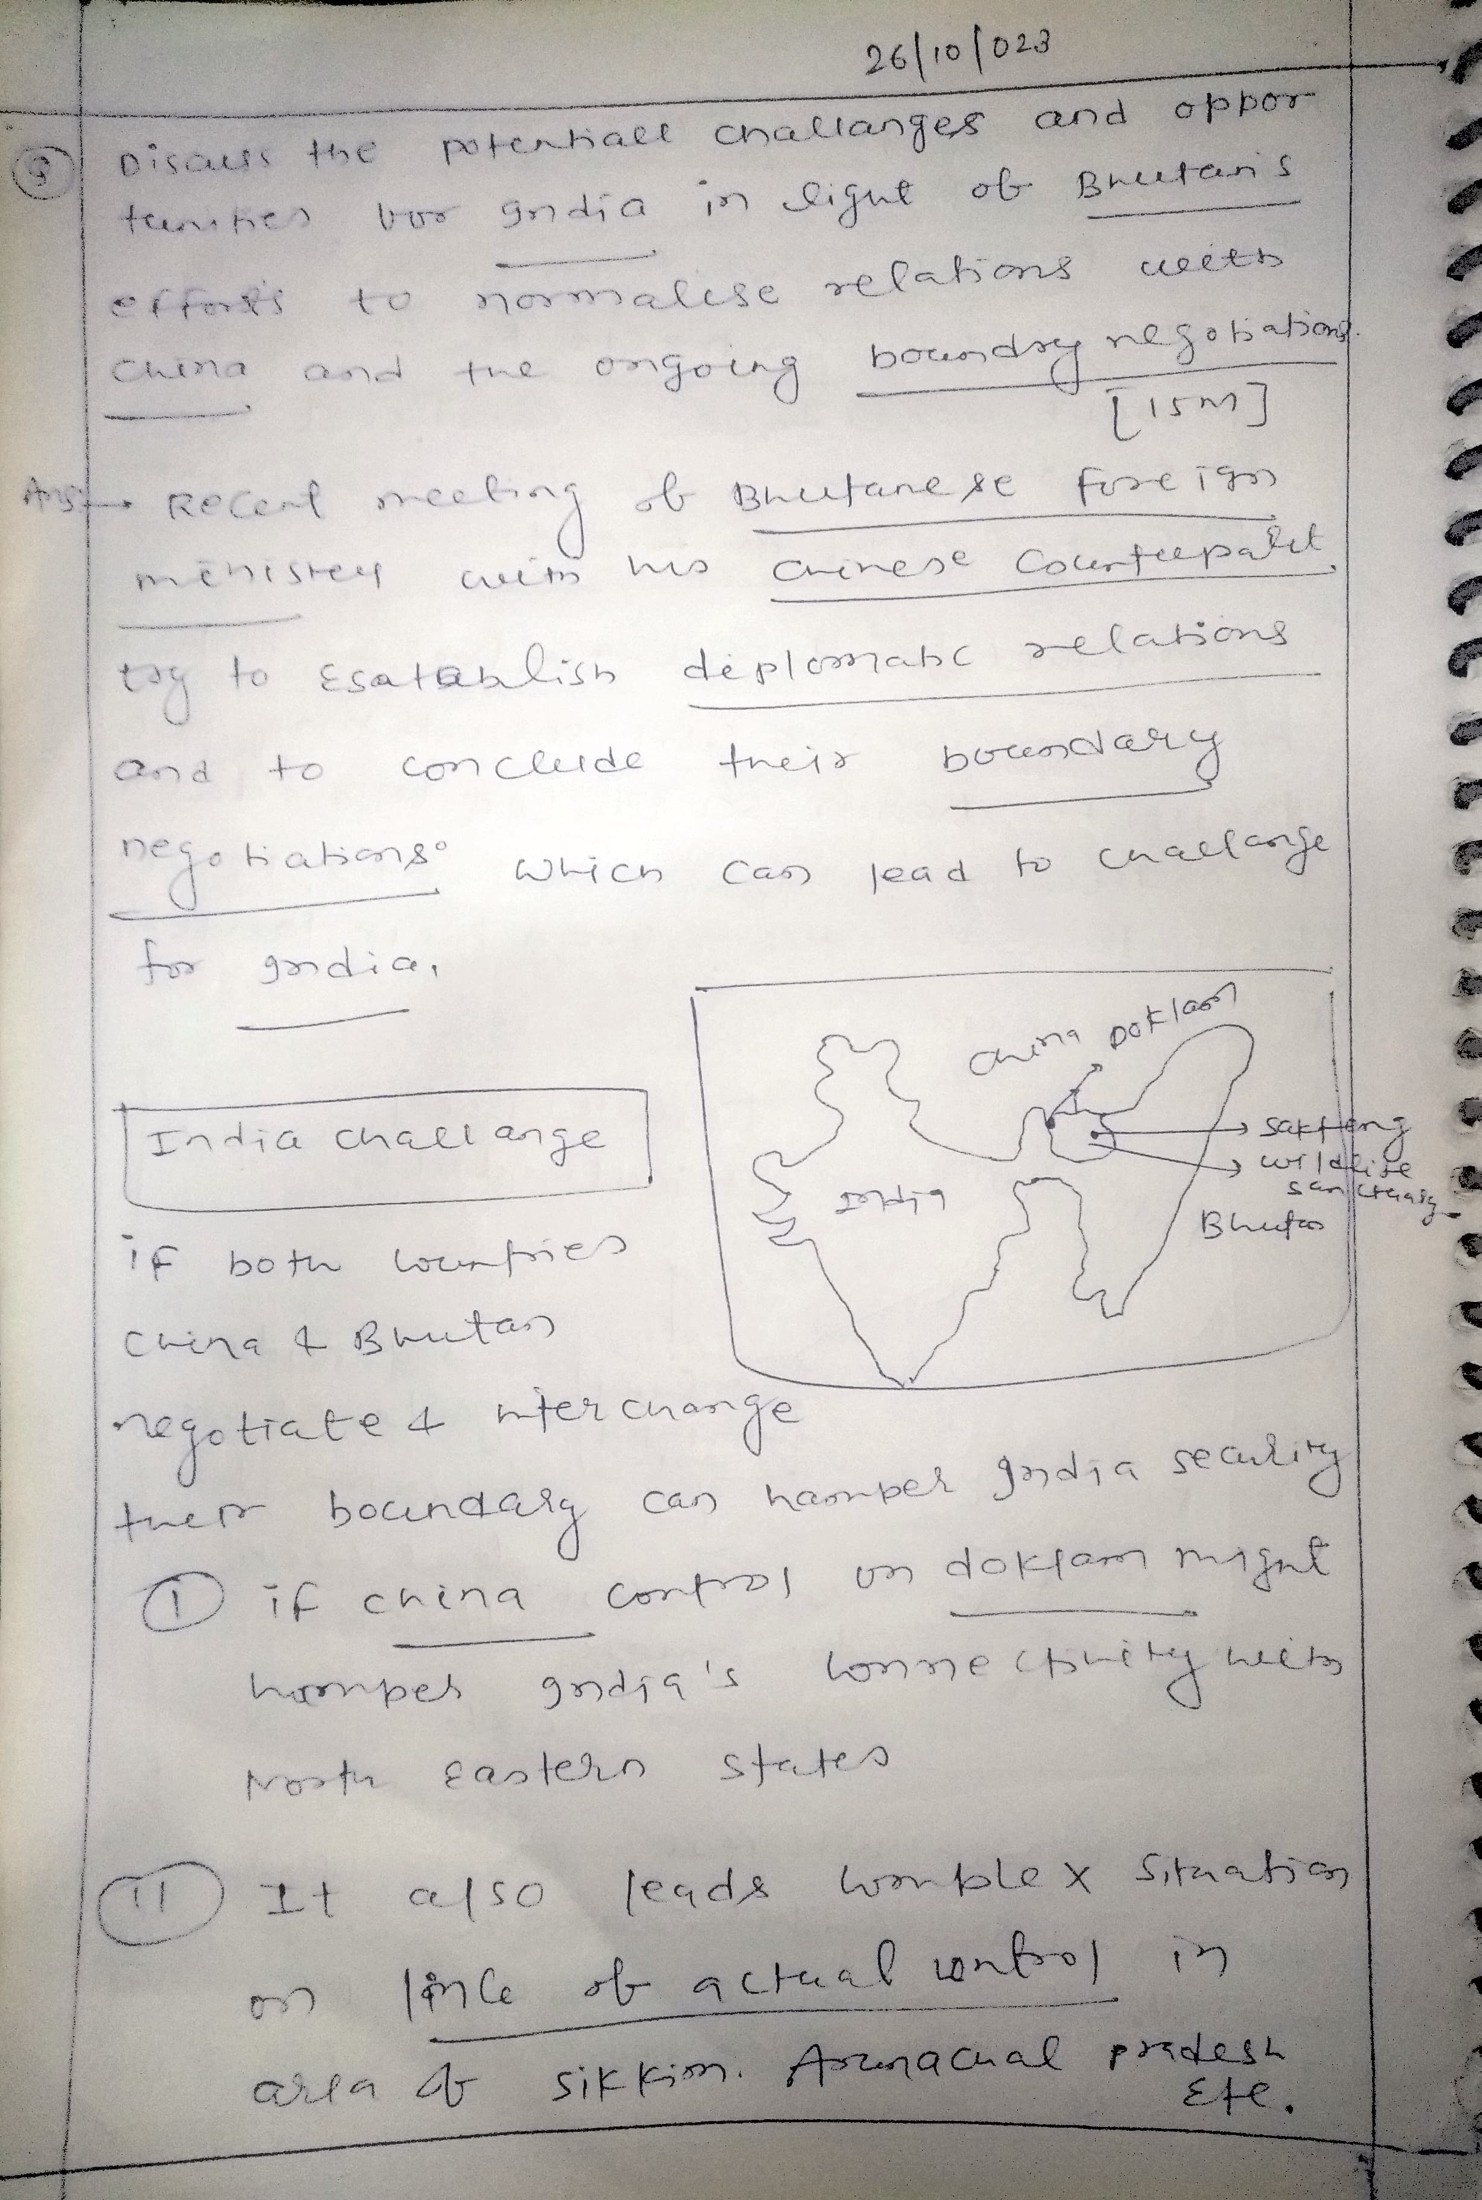 26/10/023
Q Discuss the potentiall challanges and oppor
tunities for India in light of Bhutan's
efforts to normalise relations with
China and the ongoing boundry negotiations.
[15M]
Ans→ Recent meeting of Bhutanese foreign
ministry with his Chinese Counterpart,
try to Esatablish diplomatic relations
and to conclude their boundary
negotiations. Which can lead to challange
for India.
China Doklam
Sakteng
wildlife
sanctuary
India
Bhutan
India challange
if both countries
China & Bhutan
negotiate & interchange
their boundary can hamper India security
I if china control on doklam might
hamper India's connectivity with
North Eastern states
II It also leads complex situation
on line of actual control in
area of sikkim. Arunachal pradesh
Etc.